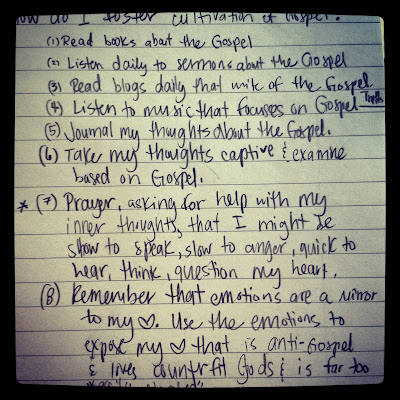 How do I foster cultivation of Gospel?
(1) Read books about the Gospel
(2) Listen daily to sermons about the Gospel
(3) Read blogs daily that write of the Gospel
(4) Listen to music that focuses on Gospel Truths
(5) Journal my thoughts about the Gospel.
(6) Take my thoughts captive & examine
based on Gospel.
* (7) Prayer, asking for help with my
inner thoughts, that I might be
slow to speak, slow to anger, quick to
hear, think, question my heart.
(8) Remember that emotions are a mirror
to my ♡. Use the emotions to
expose my ♡ that is anti-Gospel
& loves counterfit Gods & is far too